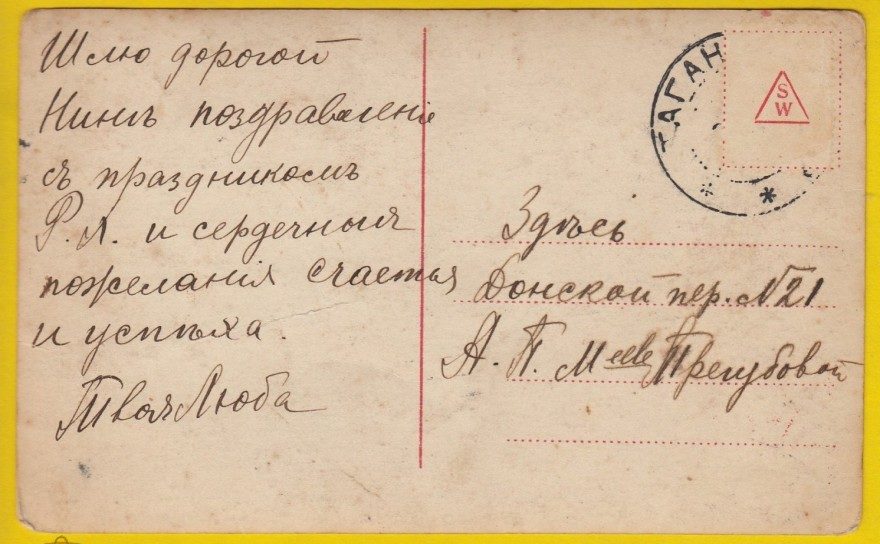 Шлю дорогой
Нинѣ поздравленiе
съ праздникомъ
Р. Х. и сердечныя
пожеланiя счастья
и успѣха.
Твоя Люба
ТАГАН
S
W
Здѣсь
Донской пер. № 21
А. П.